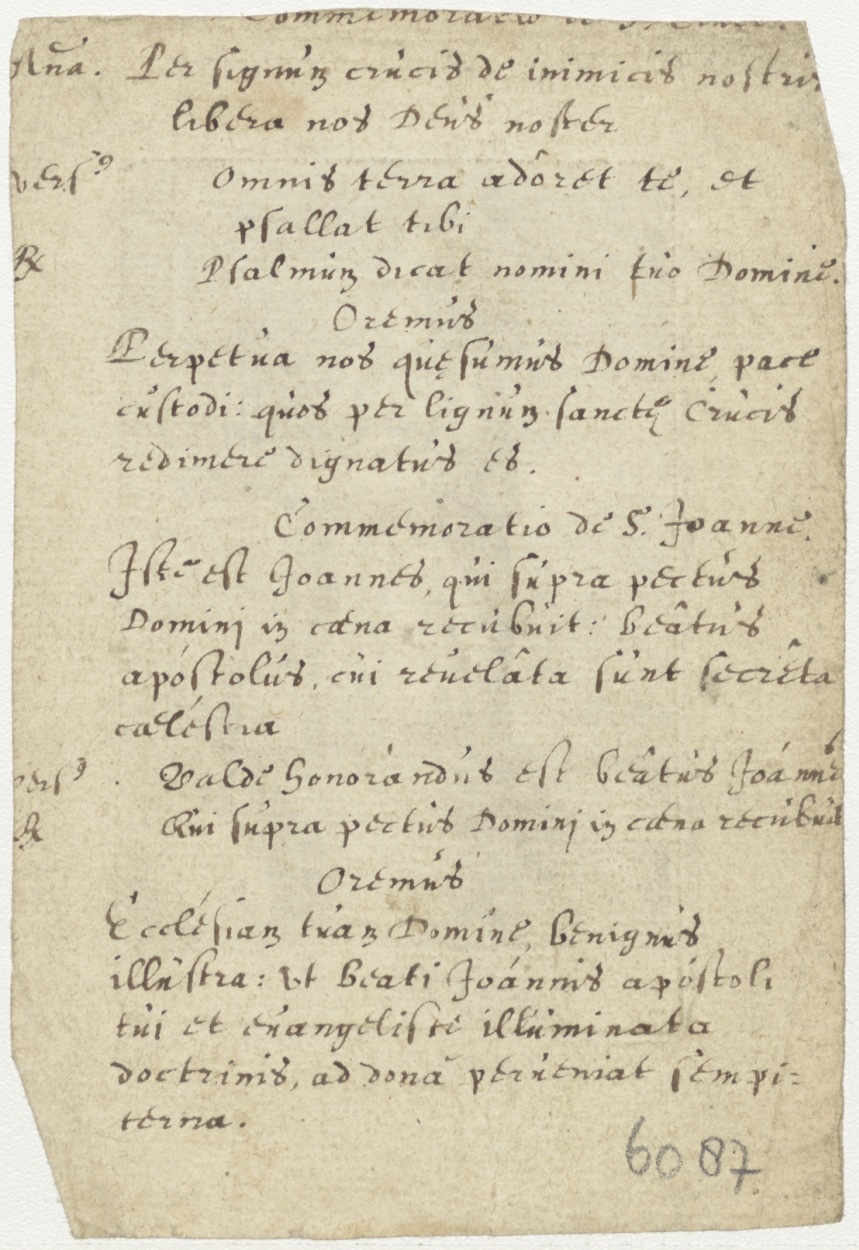 Commemoratio de S.
Aña. Per signum crucis de inimicis nostris
libera nos Deus noster
vers9 Omnis terra adôret te, et
psallat tibi
℞ Psalmum dicat nomini tuo Domine.
Oremus
Perpetua nos quęsumus Domine, pace
custodi: quos per lignum sanctę Crucis
redimere dignatus es.
Commemoratio de S. Joanne.
Iste est Joannes, qui supra pectus
Dominj in cæna recubuit: beâtus
apóstolus, cui reuelâta sunt secrêta
cæléstia
vers9 . Valde honorandus est beâtus Joánnes
℞ Qui supra pectus Dominj in cæna recubuit
Oremus
Ecclésiam tuam Domine, benignus
illustra: vt beati Joánnis apóstoli
tui et euangeliste illuminata
doctrinis, ad dona perueniat sempi=
terna.
6087